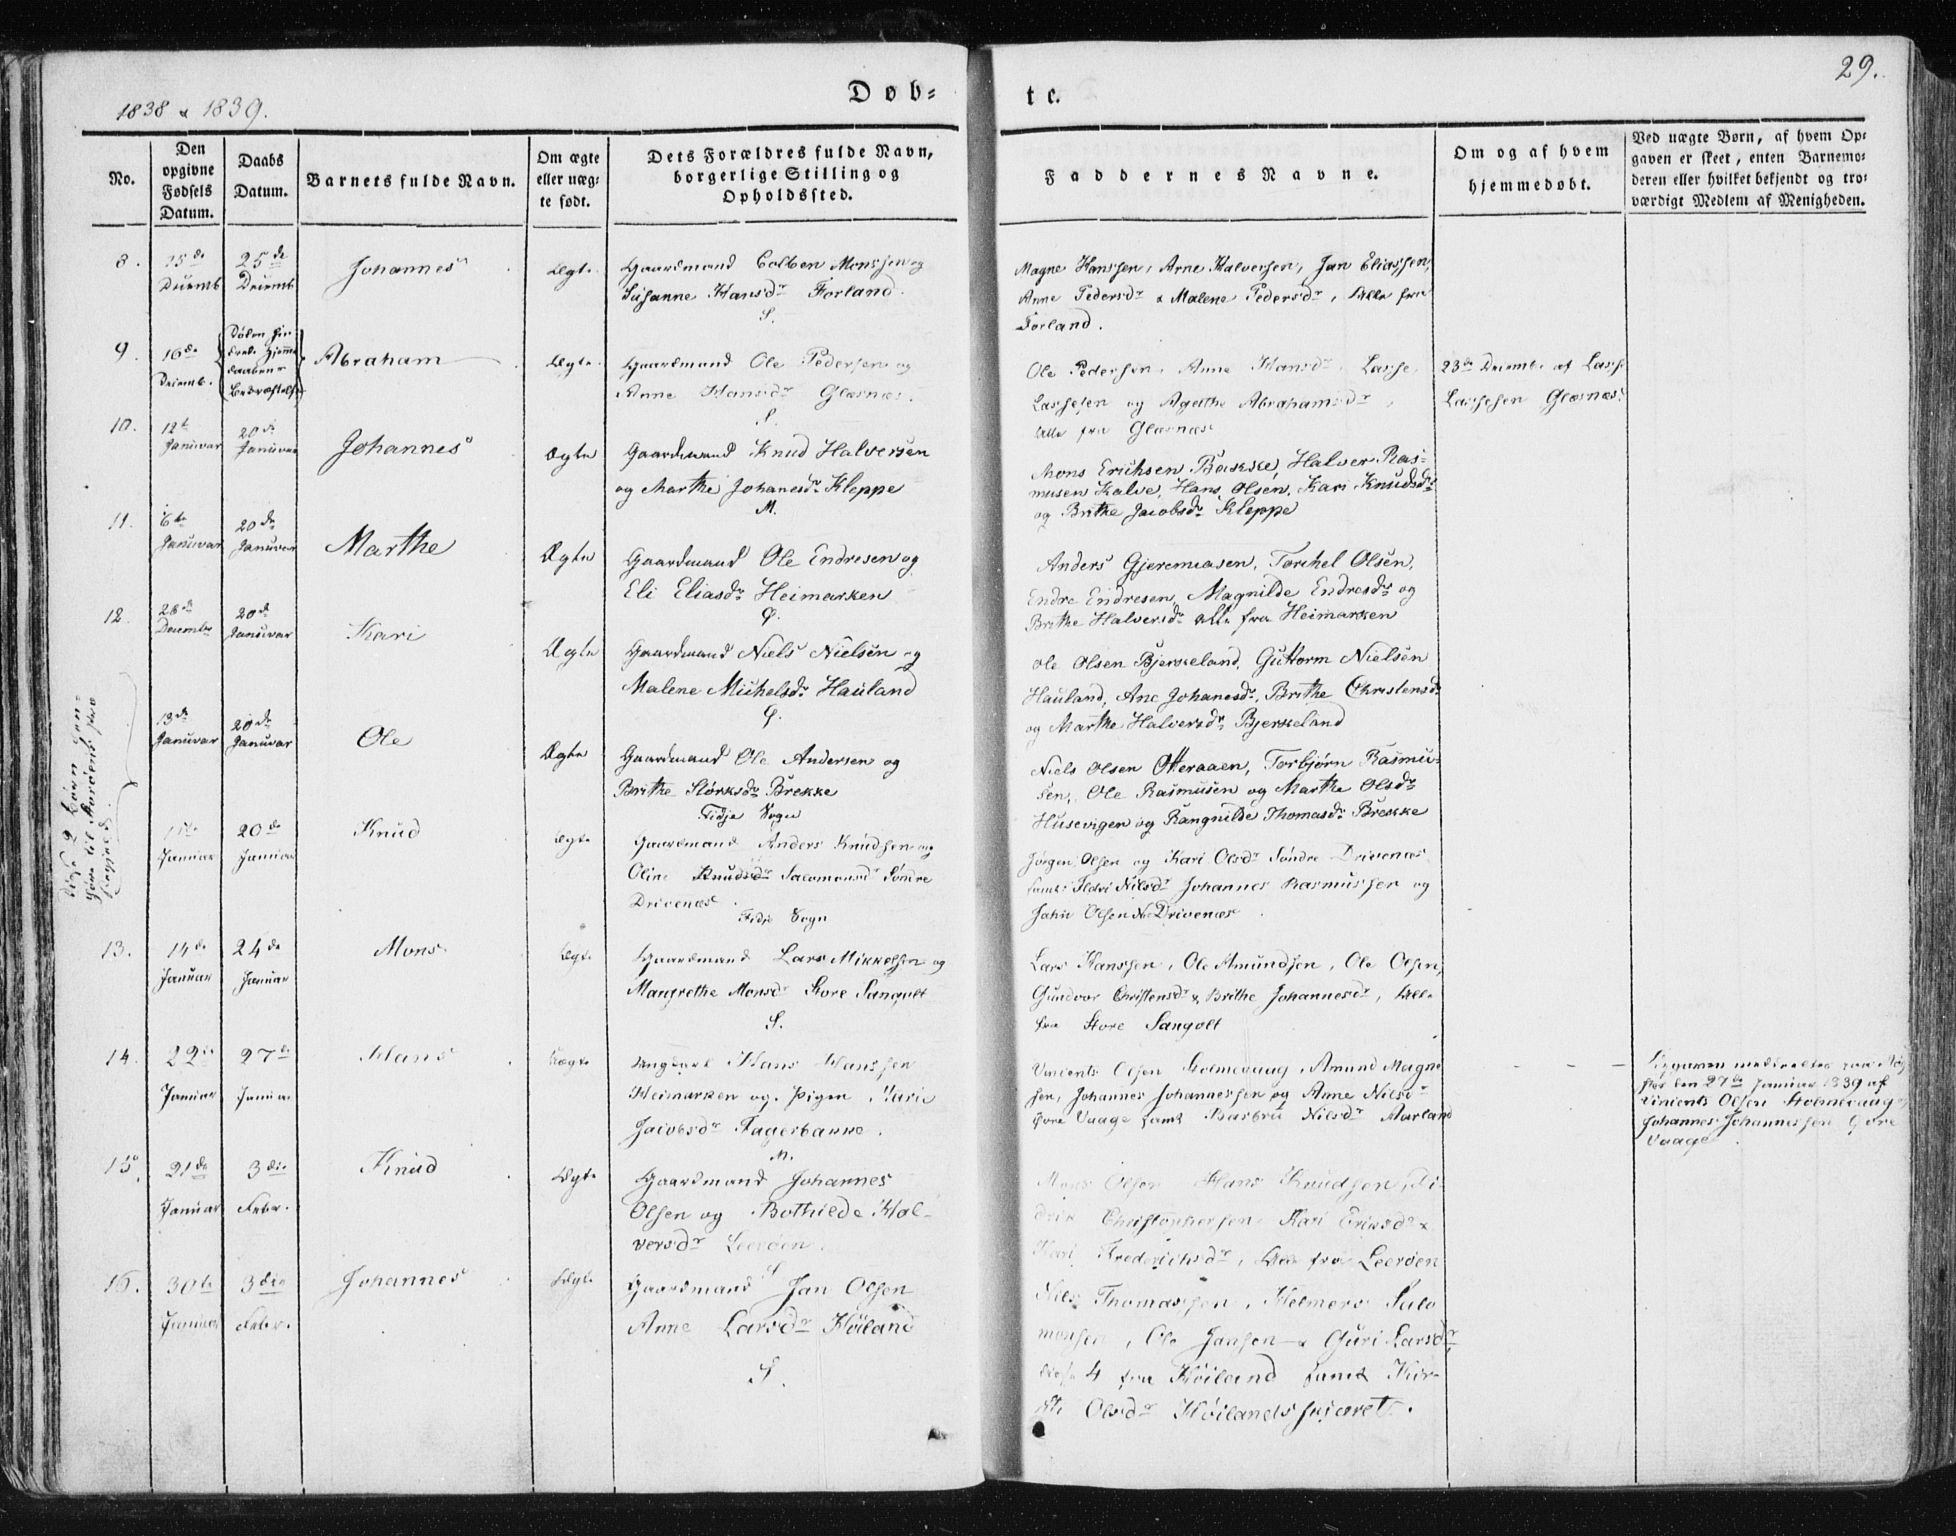 1838 & 1839.
Døb=
te.
29.
No.
Den
opgivne
Fødsels
Datum.
Daabs
Datum.
Barnets fulde Navn.
Om ægte
eller uæg=
te født.
Dets Forældres fulde Navn,
borgerlige Stilling og
Opholdssted.
Faddernes Navne.
Om og af hvem
hjemmedøbt.
Ved uægte Børn, af hvem Op=
gaven er skeet, enten Barnemo=
deren eller hvilket bekjendt og tro=
værdigt Medlem af Menigheden.
8.
15de
Decemb
25de
Decemb
Johannes
Ægte
Gaardmand Colben Monssen og
Susanne Hansdr Forland.
S.
Magne Hanssen, Arne Halversen, Jan Eliassen,
Anne Pedersdr & Malene Pedersdr, Alle fra
Forland.
9.
16de
Decemb.
Daabens
Bekræftelse
Abraham
Ægte
Gaardmand Ole Pedersen og
Anne Hansdr Glæsnæs.
S.
Ole Pedersen, Anne Hansdr, Lasse
Lassesen og Agethe Abrahamsdr,
Alle fra Glæsnæs
23de Decemb. af Lasse
Lassesen Glæsnæs.
10.
12te
Januvar
20de
Januvar
Johannes
Ægte
Gaardmand Knud Halversen
og Marthe Johanesdr Kleppe
M.
Mons Erichsen Bakke, Halver Ras=
musen Kalve, Hans Olsen, Kari Knudsdr
og Brithe Jacobsdr Kleppe
11.
6te
Januvar
20de
Januvar
Marthe
Ægte
Gaardmand Ole Endresen og
Eli Eliasdr Heimarken
Anders Gjeremiasen, Torchel Olsen,
Endre Endresen, Magnilde Endresdr og
Brithe Halversdr alle fra Heimarken
12.
26de
December
20de
Januvar
Kari
Ægte
Gaardmand Niels Nielsen og
Malene Michelsdr Hauland
Ole Olsen Bjerkeland, Guttorm Nielsen
Hauland, Ane Johanesdr, Brithe Christensdr
og Marthe Halversdr Bjerkeland
13de
Januvar
20de
Januvar
Ole
Ægte
Gaardmand Ole Andersen og
Brithe Størksdr Brekke
Fidje Sogn
Niels Olsen Otteraaen, Torbjørn Rasmu=
sen, Ole Rasmusen og Marthe Olsdr
Husevigen og Rangnilde Thomasdr Brekke
Disse 2 Børn
høre til
Januar
20de
Januar
Knud
Ægte
Gaardmand Anders Knudsen og
Oline Salomonsdr Søndre
Drivenæs.
Fidje Sogn
Jørgen Olsen og Kari Olsdr Søndre Drivenæs
samt Nilsdr Johannes Rasmussen og
Olsen Drivenæs.
13.
14de
Januar
24de
Januar
Mons
Ægte
Gaardmand Lars Mikkelsen og
Mangrethe Monsdr Store Sangolt
S.
Lars Hanssen, Ole Amundsen, Ole Olsen,
Gundvor Christensdr & Brithe Johannesdr, Alle
fra Store Sangolt
14.
22de
Januar
27de
Januar
Hans
Uægte
Ungkarl Hans Hanssen
Heimarken og Pigen Marie
Jacobsdr Fagerbakke.
M.
Vincents Olsen Stolmevaag, Amund Magne
sen, Johannes Johannessen og Anne Nilsdr
Vaage samt Barbru Nilsdr Aarland
Opgaven meddeeltes
den 27de Januar 1839 af
Vincents Olsen Stolmevaag
Johannes Johannessen
Vaage.
15.
21de
Januar
3die
Febr.
Knud
Ægte
Gaardmand Johannes
Olsen og Bothilde Hal=
versdr Leerøen.
S
Mons Olsen Hans Knudsen, Di=
drik Christophersen, Kari Eriksdr &
Kari Frederichsdr, Alle fra Leerøen
16.
30te
Januar
3die
Febr.
Johannes
Ægte
Gaardmand Jan Olsen
Anne Larsdr Høiland
S.
Nils Thomassen, Helmers Salo
monsen, Ole Jansen & Guri Larsdr
disse 4 fra Høiland samt Kir=
sti Olsdr Høilandskjæret.